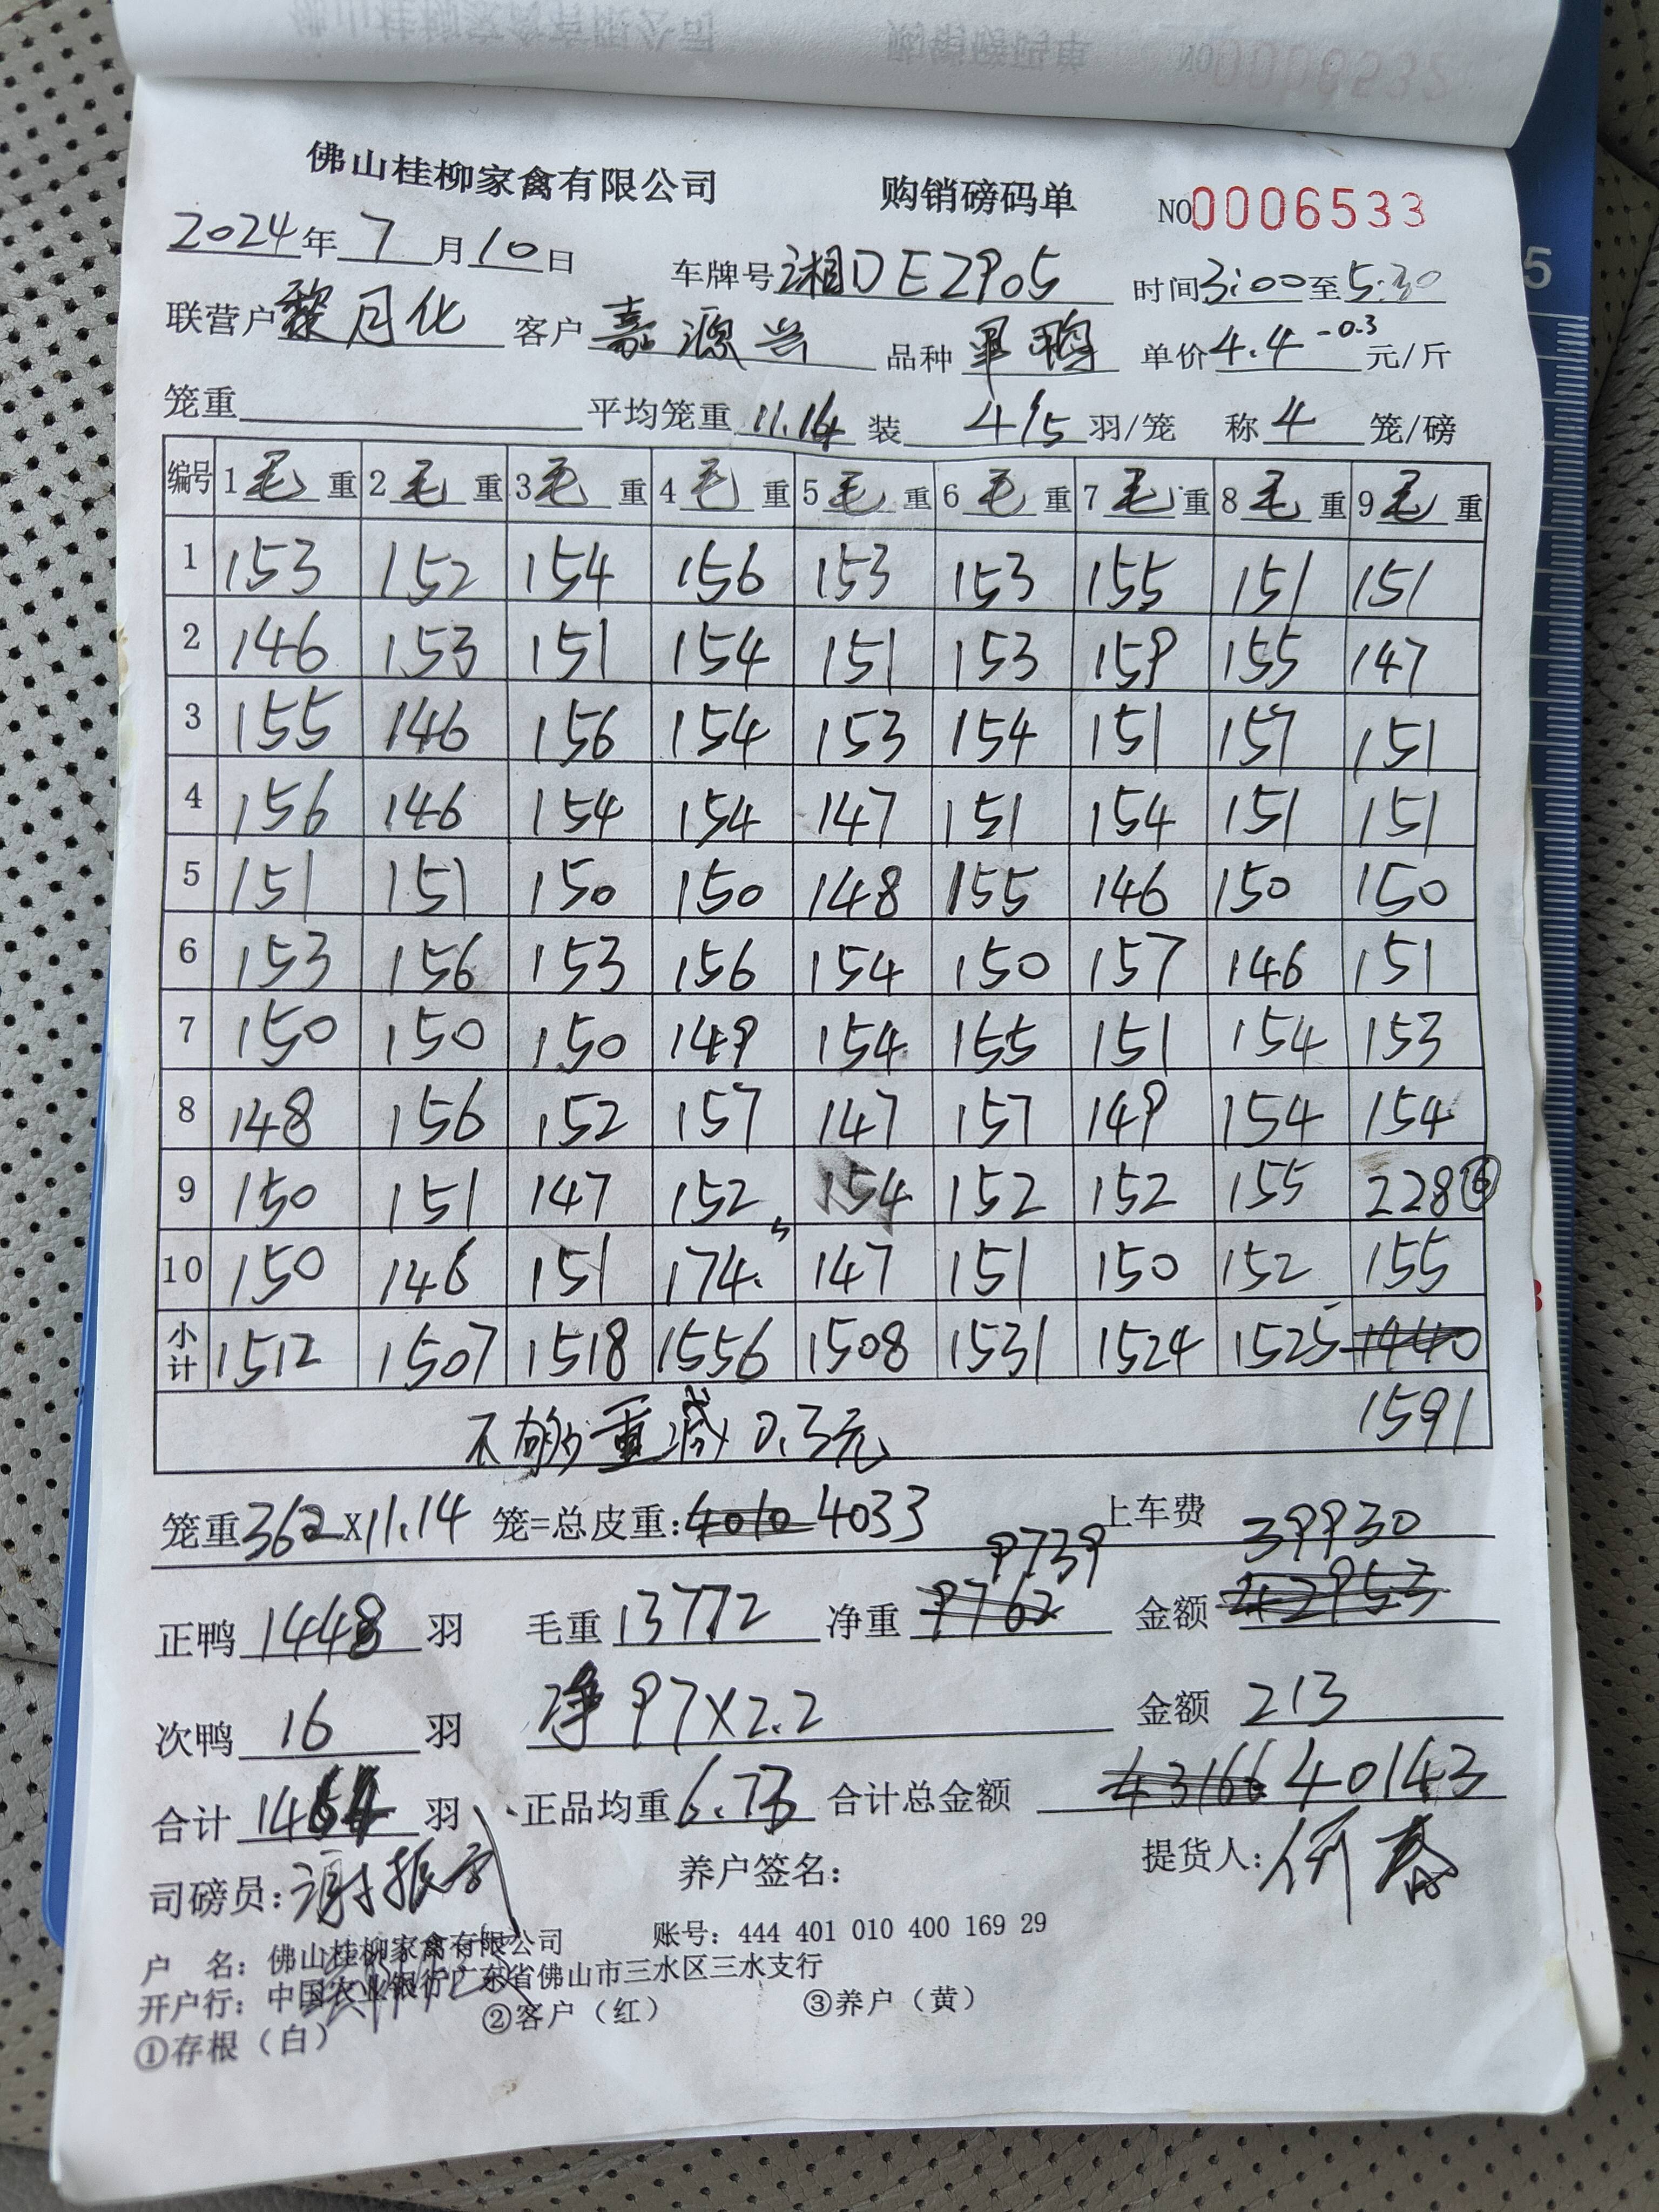 佛山桂柳家禽有限公司 购销磅码单 NO0006533
2024年7月10日 车牌号湘DEZP05 时间3:00至5:30
联营户黎月化 客户嘉源兴 品种 单价4.4-0.3元/斤
笼重 平均笼重11.14 装4/5羽/笼 称4笼/磅
编号 1毛重 2毛重 3毛重 4毛重 5毛重 6毛重 7毛重 8毛重 9毛重
1 153 152 154 156 153 153 155 151 151
2 146 153 151 154 151 153 159 155 147
3 155 146 156 154 153 154 151 157 151
4 156 146 154 154 147 151 154 151 151
5 151 151 150 150 148 155 146 150 150
6 153 156 153 156 154 150 157 146 151
7 150 150 150 149 154 155 151 154 153
8 148 156 152 157 147 157 149 154 154
9 150 151 147 152 154 152 152 155 228⑥
10 150 146 151 174 5 147 151 150 152 155
小计 1512 1507 1518 1556 1508 1531 1524 1525 1440
不够重减0.3元 1591
笼重362x11.14 笼=总皮重:4010 4033 上车费 39930
9739
正鸭1448羽 毛重13772 净重9762 金额42953
次鸭16羽 净97x2.2 金额213
合计1464羽 正品均重6.73 合计总金额43166 40143
司磅员:谢振 养户签名: 提货人:
户 名: 佛山桂柳家禽有限公司 账号: 444 401 010 400 169 29
开户行: 中国农业银行广东省佛山市三水区三水支行
①存根（白） ②客户（红） ③养户（黄）